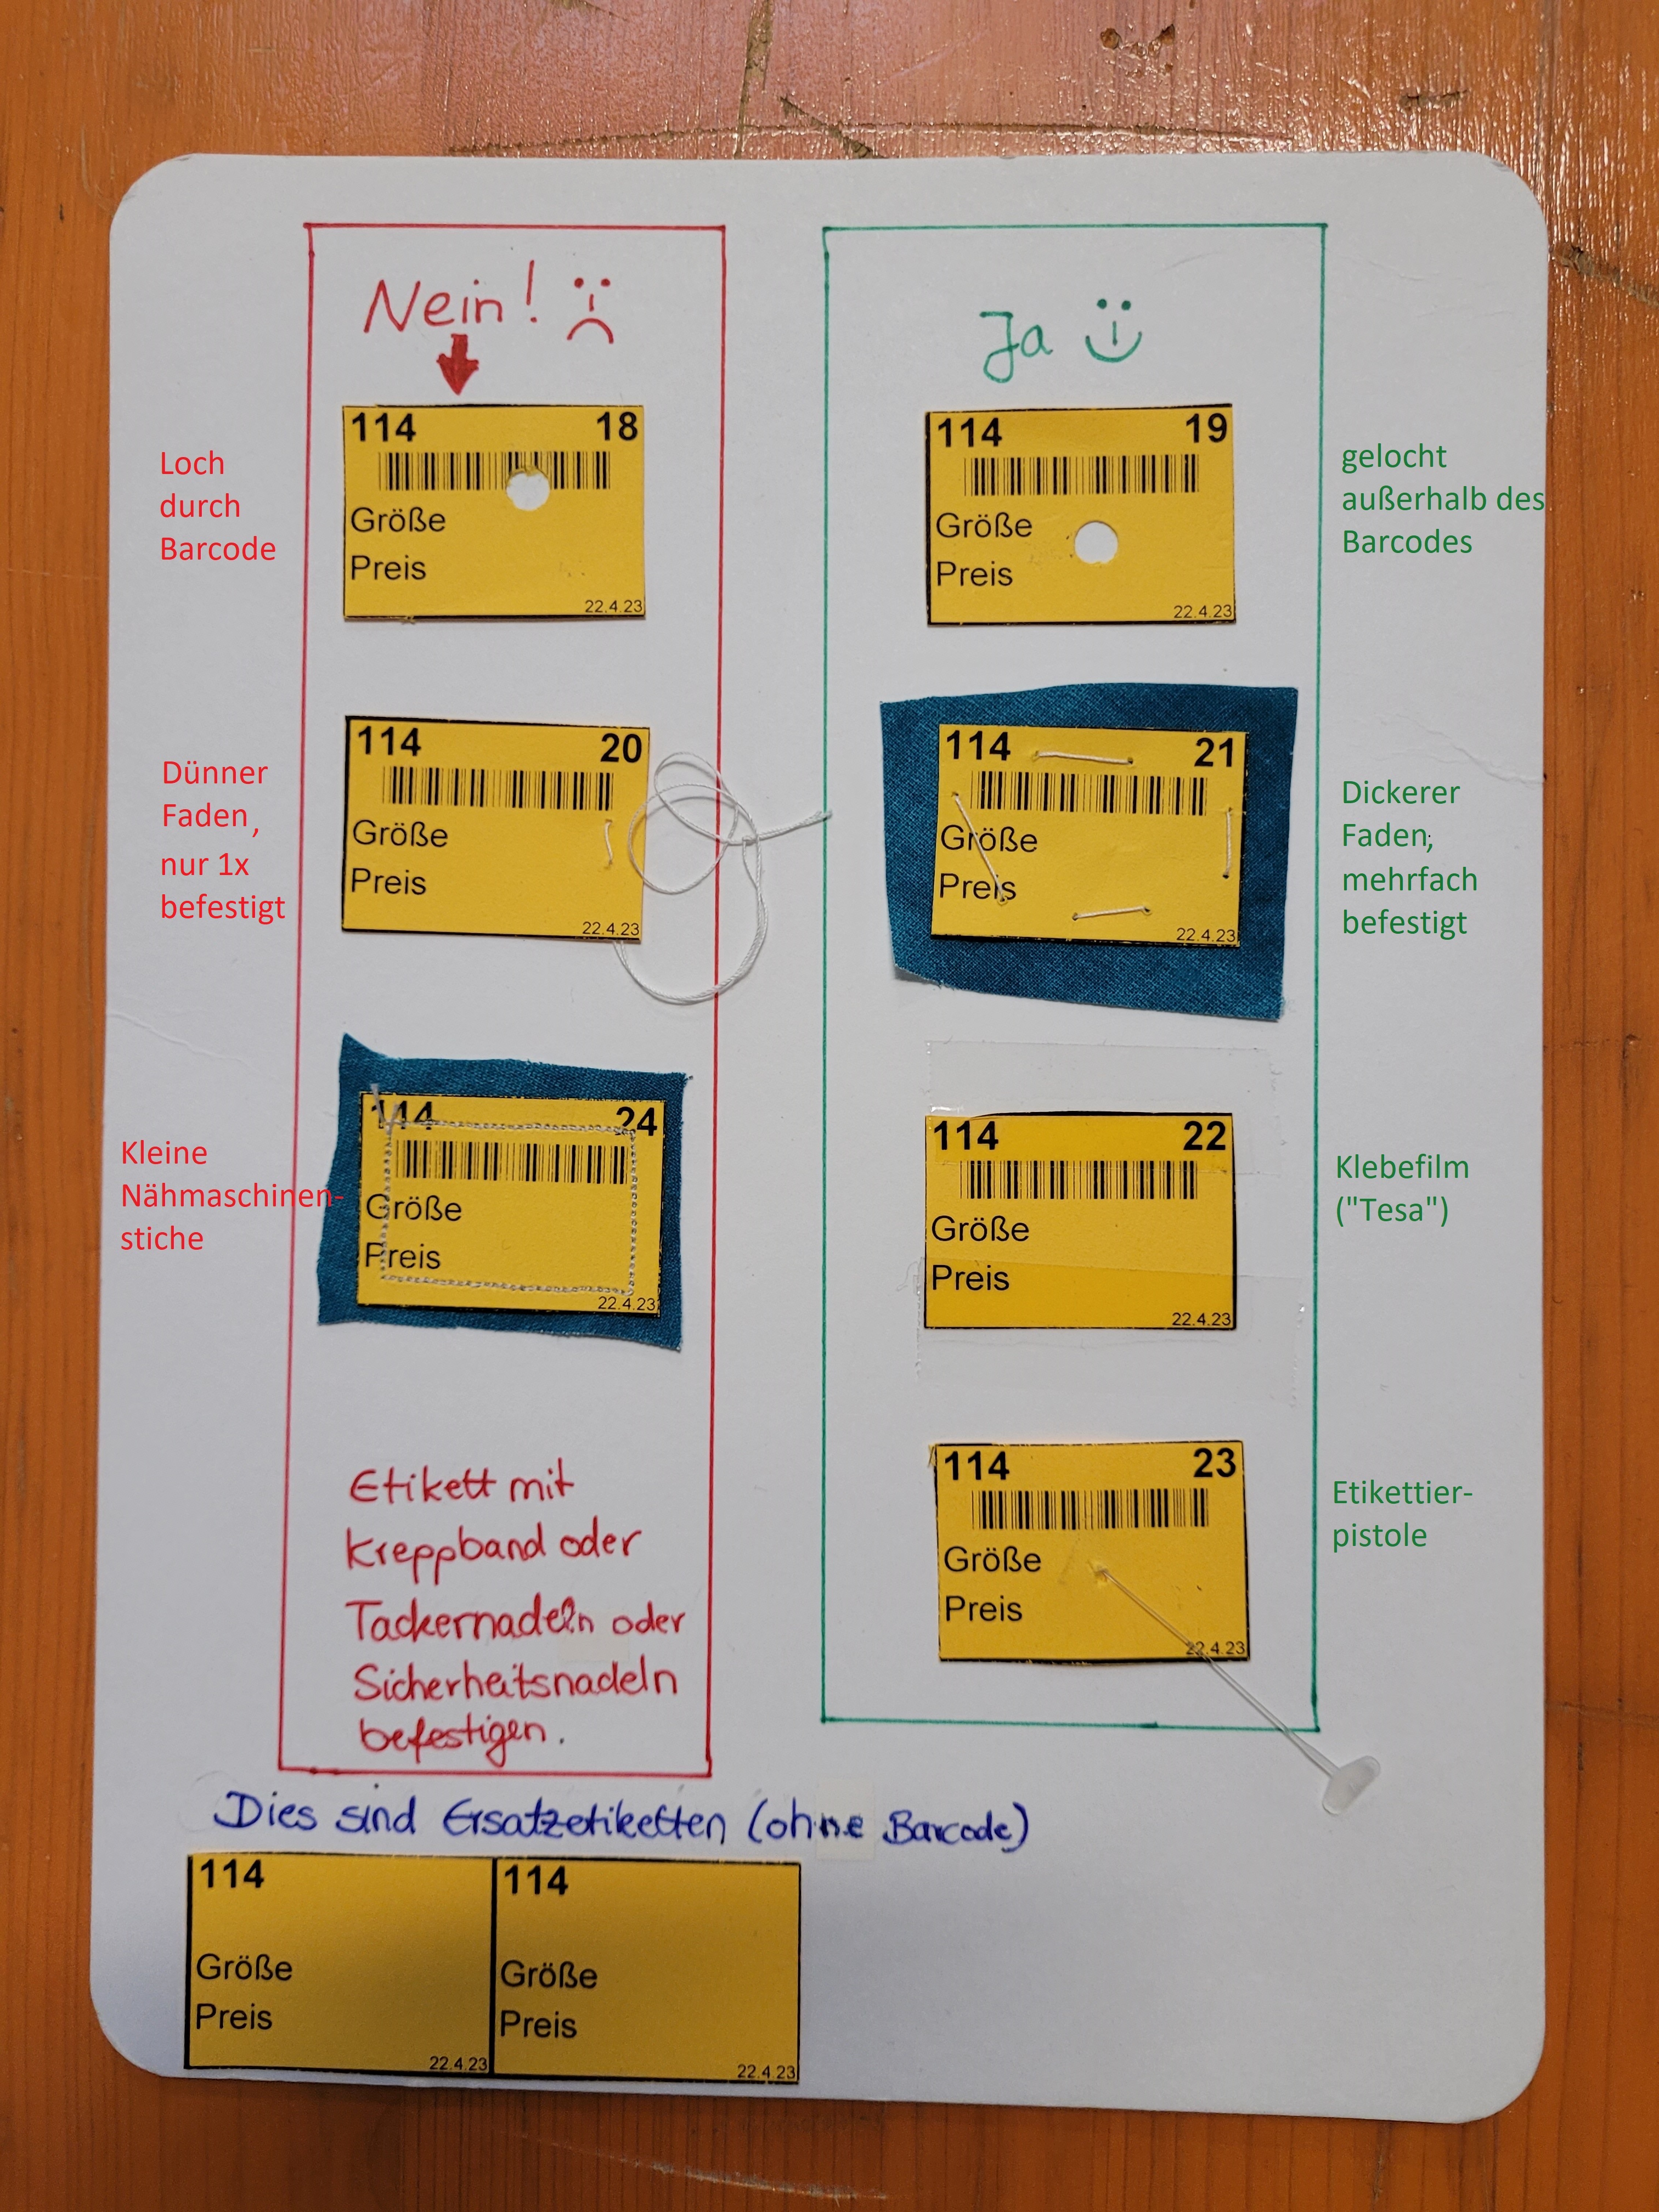 Nein!
Ja
114 18
Loch
durch
Barcode
Größe
Preis
22.4.23
114 19
gelocht
außerhalb des
Barcodes
Größe
Preis
22.4.23
114 20
Dünner
Faden,
nur 1x
befestigt
Größe
Preis
22.4.23
114 21
Dickerer
Faden,
mehrfach
befestigt
Größe
Preis
22.4.23
114 24
Kleine
Nähmaschinen-
stiche
Größe
Preis
22.4.23
114 22
Klebefilm
("Tesa")
Größe
Preis
22.4.23
Etikett mit
Kreppband oder
Tackernadeln oder
Sicherheitsnadeln
befestigen.
114 23
Etikettier-
pistole
Größe
Preis
22.4.23
Dies sind Ersatzetiketten (ohne Barcode)
114
Größe
Preis
22.4.23
114
Größe
Preis
22.4.23